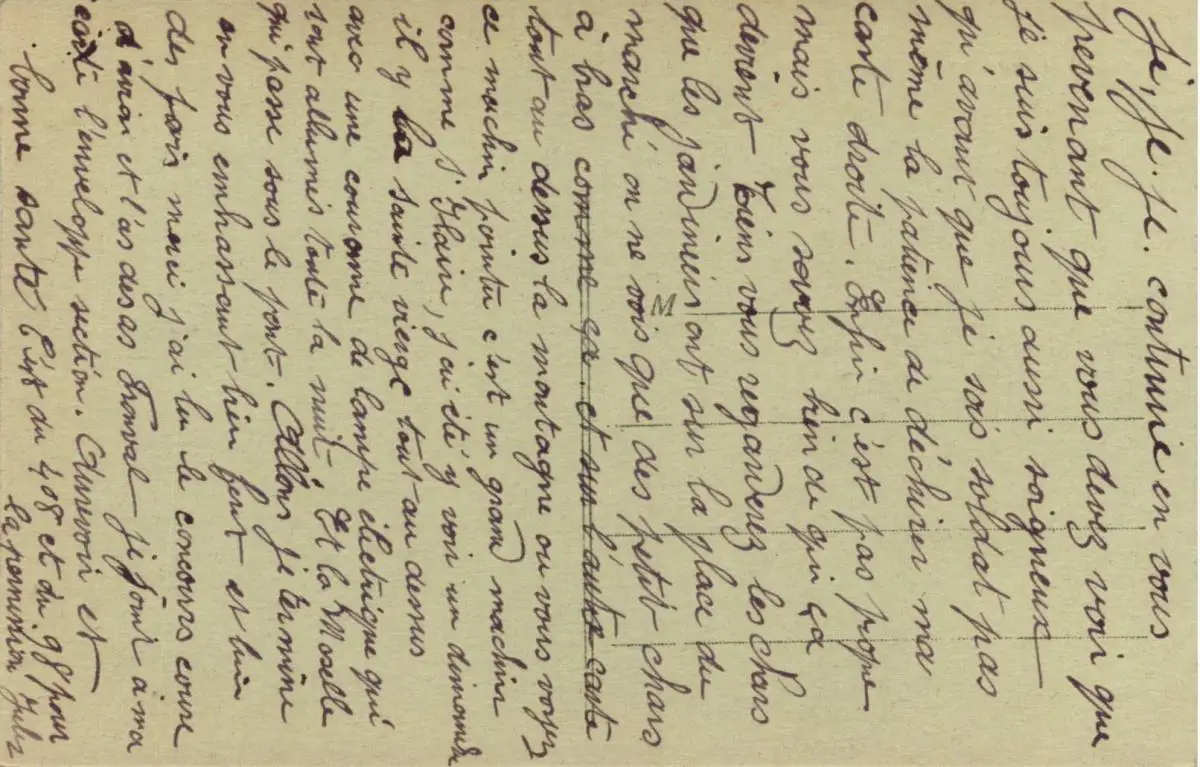 Je, Je. Je. continue en vous
prevenant que vous devez voir que
je suis toujours aussi soigneux
qu'avant que je sois soldat pas
même la patience de déchirer ma
carte droite. Enfin c'est pas propre
mais vous savez bien de qui ça
devient Tiens vous regarderez les chars
que les jardiniers ont sur la place du
marché on ne vois que des petit chars
à bras comme ça et sur l'autre carte
tout au dessus la montagne ou vous voyez
ce machin pointu c'est un grand machin
comme St Hlaire, j'ai été y voir un dimanche
il y la sainte vierge tout au dessus
avec une couronne de lampe électrique qui
sont allumés toute la nuit. Et la Moselle
qui passe sous le pont. Allons je termine
en vous embrassant bien fort et bien
des fois merci j'ai lu le concours course
d'avion et l'as des as Fronval je joint à ma
carte l'enveloppe section. Aurevoir et
bonne santé C'est du 408 et du 98 pour
la permission Jules
M